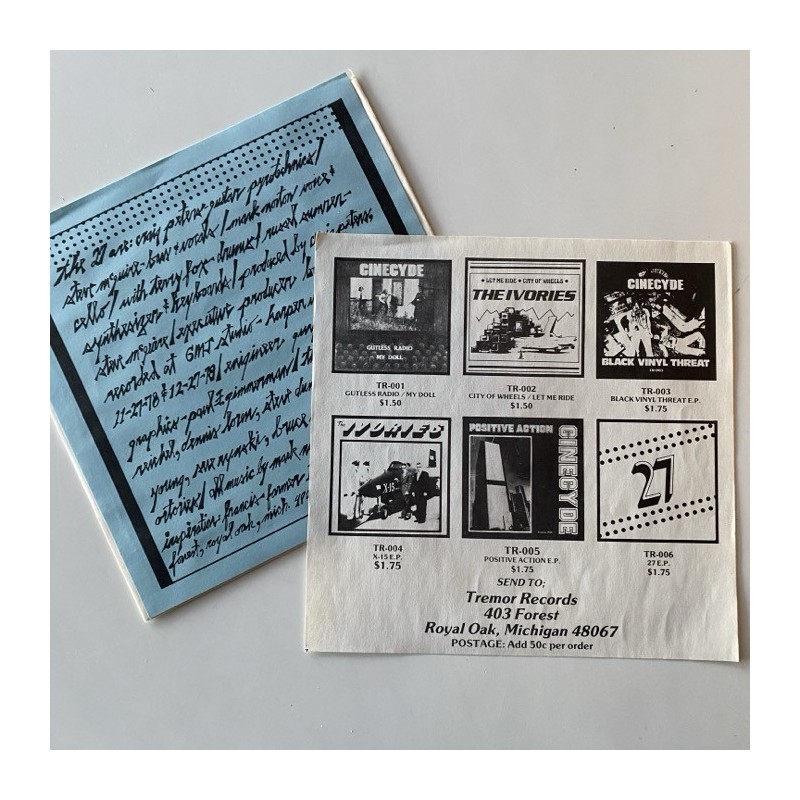 the 27 are: craig peters-guitar pyrotechnics/
steve mcguire-bass & vocals/mark norton voice &
cello/with terry fox-drums/
synthesizer & keyboards/produced by craig peters
steve mcguire/executive producer
recorded at GMT studio- harper
11-27-78 & 12-27-78/engineer
graphics-paul zimmerman/
young,
music by mark
inspiration: francis farmer
forest, royal oak, mich.
CINECYDE
GUTLESS RADIO
MY DOLL
TR-001
GUTLESS RADIO / MY DOLL
$1.50
• LET ME RIDE • CITY OF WHEELS •
THE IVORIES
TR-002
CITY OF WHEELS / LET ME RIDE
$1.50
CINECYDE
BLACK VINYL THREAT
TR-003
TR-003
BLACK VINYL THREAT E.P.
$1.75
The IVORIES
X-15
TR-004
X-15 E.P.
$1.75
POSITIVE ACTION
CINECYDE
TR-005
POSITIVE ACTION E.P.
$1.75
27
TR-006
27 E.P.
$1.75
SEND TO;
Tremor Records
403 Forest
Royal Oak, Michigan 48067
POSTAGE: Add 50c per order